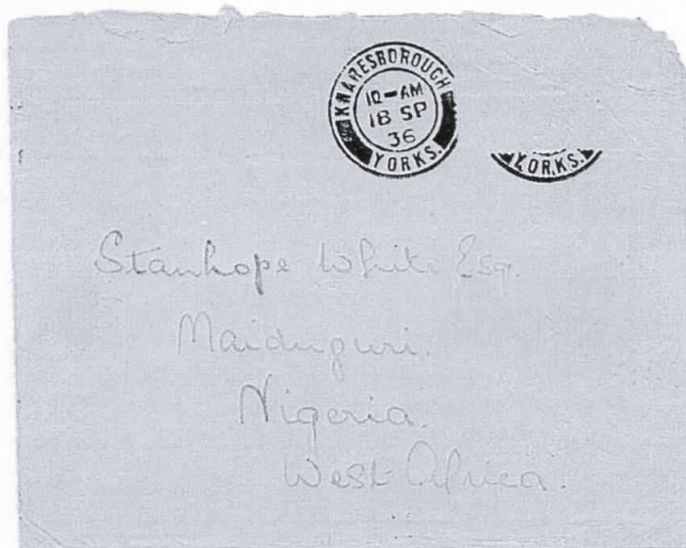 KNARESBOROUGH
10-AM
18 SP
36
YORKS.
YORKS.
Stanhope White Esq.
Maiduguri.
Nigeria.
West Africa.